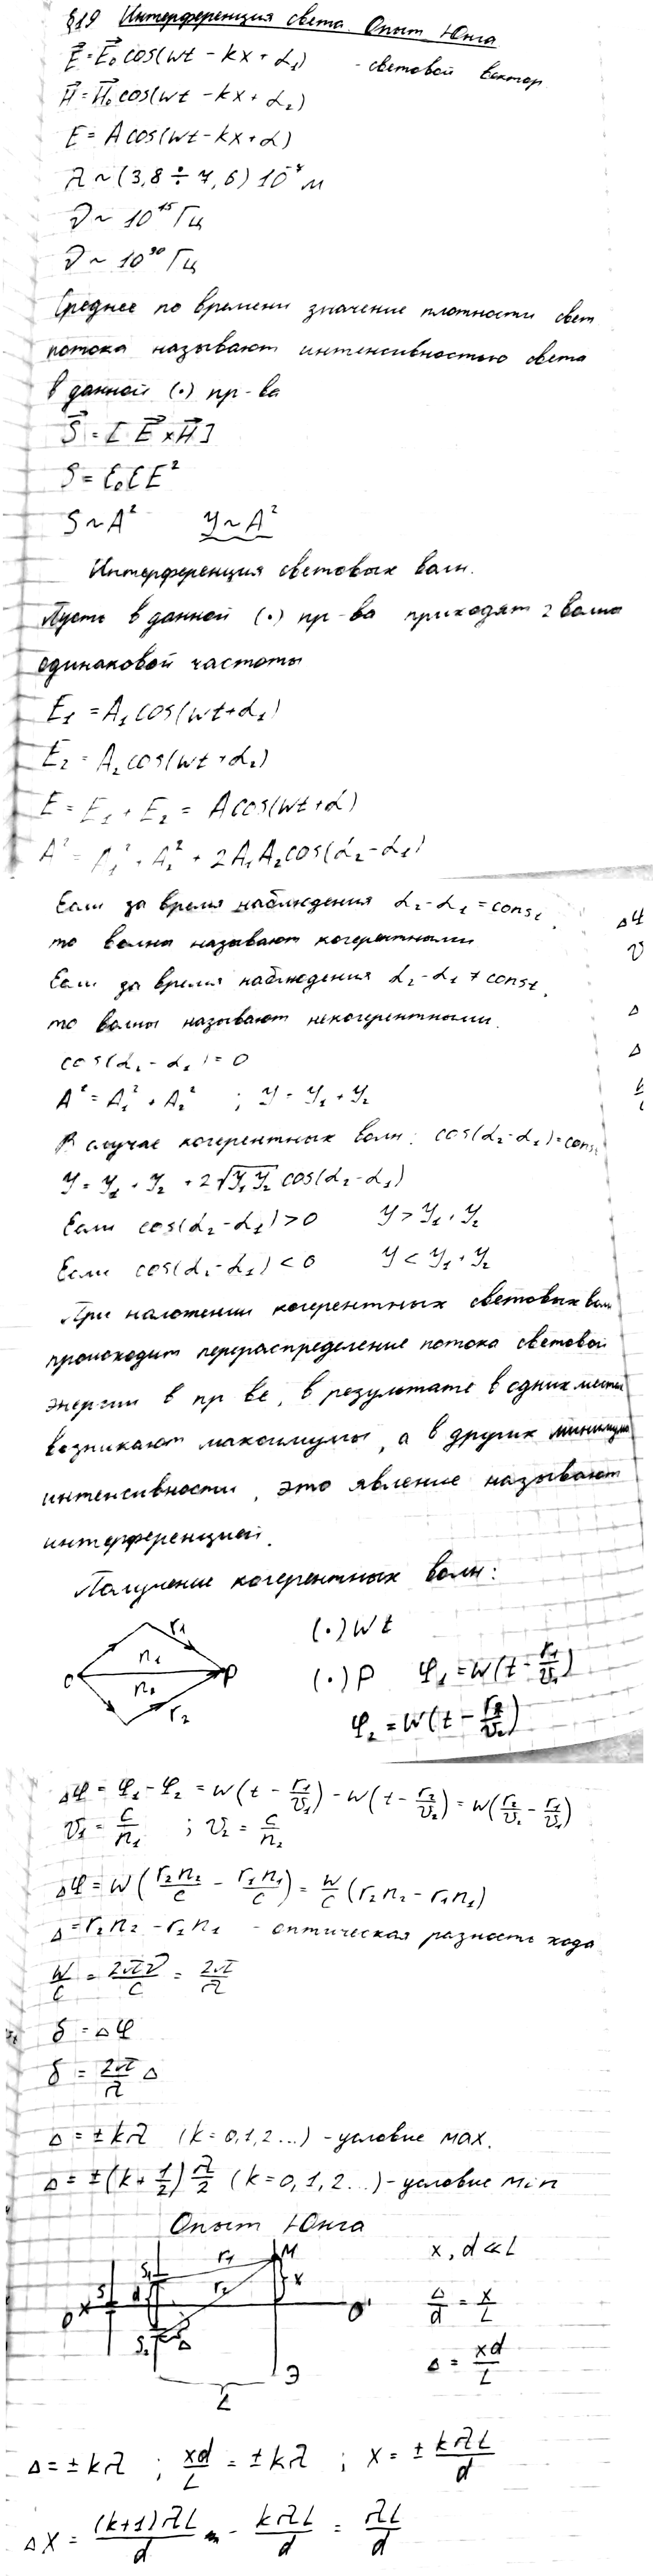 §19 Интерференция света. Опыт Юнга
E⃗ = E⃗₀ cos(wt - kx + α₁) - световой вектор
H⃗ = H⃗₀ cos(wt - kx + α₂)
E = A cos(wt - kx + α)
λ ~ (3,8 ÷ 7,6) 10⁻⁷ м
ν ~ 10¹⁵ Гц
ν ~ 10³⁰ Гц
Среднее по времени значение плотности свет
потока называют интенсивностью света
в данной (·) пр-ва
S⃗ = [E⃗ × H⃗]
S = ε₀ c E²
S ~ A² У ~ A²
Интерференция световых волн.
Пусть в данной (·) пр-ва приходят 2 волны
одинаковой частоты
E₁ = A₁ cos(wt + α₁)
E₂ = A₂ cos(wt + α₂)
E = E₁ + E₂ = A cos(wt + α)
A² = A₁² + A₂² + 2A₁A₂ cos(α₂ - α₁)
Если за время наблюдения α₂ - α₁ = const,
то волны называют когерентными
Если за время наблюдения α₂ - α₁ ≠ const,
то волны называют некогерентными.
cos(α₂ - α₁) = 0
A² = A₁² + A₂² ; У = У₁ + У₂
В случае когерентных волн: cos(α₂ - α₁) = const
У = У₁ + У₂ + 2√У₁У₂ cos(α₂ - α₁)
Если cos(α₂ - α₁) > 0 У > У₁ + У₂
Если cos(α₂ - α₁) < 0 У < У₁ + У₂
При наложении когерентных световых волн
происходит перераспределение потока световой
энергии в пр-ве, в результате в одних местах
возникают максимумы, а в других минимумы
интенсивности, это явление называют
интерференцией.
Получение когерентных волн:
r₁ (·) wt
O n₁ P (·) P φ₁ = w(t - r₁/υ₁)
n₂ r₂ φ₂ = w(t - r₂/υ₂)
Δφ = φ₁ - φ₂ = w(t - r₁/υ₁) - w(t - r₂/υ₂) = w(r₂/υ₂ - r₁/υ₁)
υ₁ = c/n₁ ; υ₂ = c/n₂
Δφ = w(r₂n₂/c - r₁n₁/c) = w/c (r₂n₂ - r₁n₁)
Δ = r₂n₂ - r₁n₁ - оптическая разность хода
w/c = 2πν/c = 2π/λ
δ = Δφ
δ = 2π/λ Δ
Δ = ± kλ (k = 0,1,2...) - условие max.
Δ = ± (k + 1/2) λ/2 (k = 0, 1, 2...) - условие min
Опыт Юнга
S₁ r₁ M x, d << L
S d r₂ x
O O' Δ/d = x/L
S₂ Δ Э Δ = xd/L
L
Δ = ± kλ ; xd/L = ± kλ ; x = ± kλL/d
Δx = (k+1)λL/d - kλL/d = λL/d